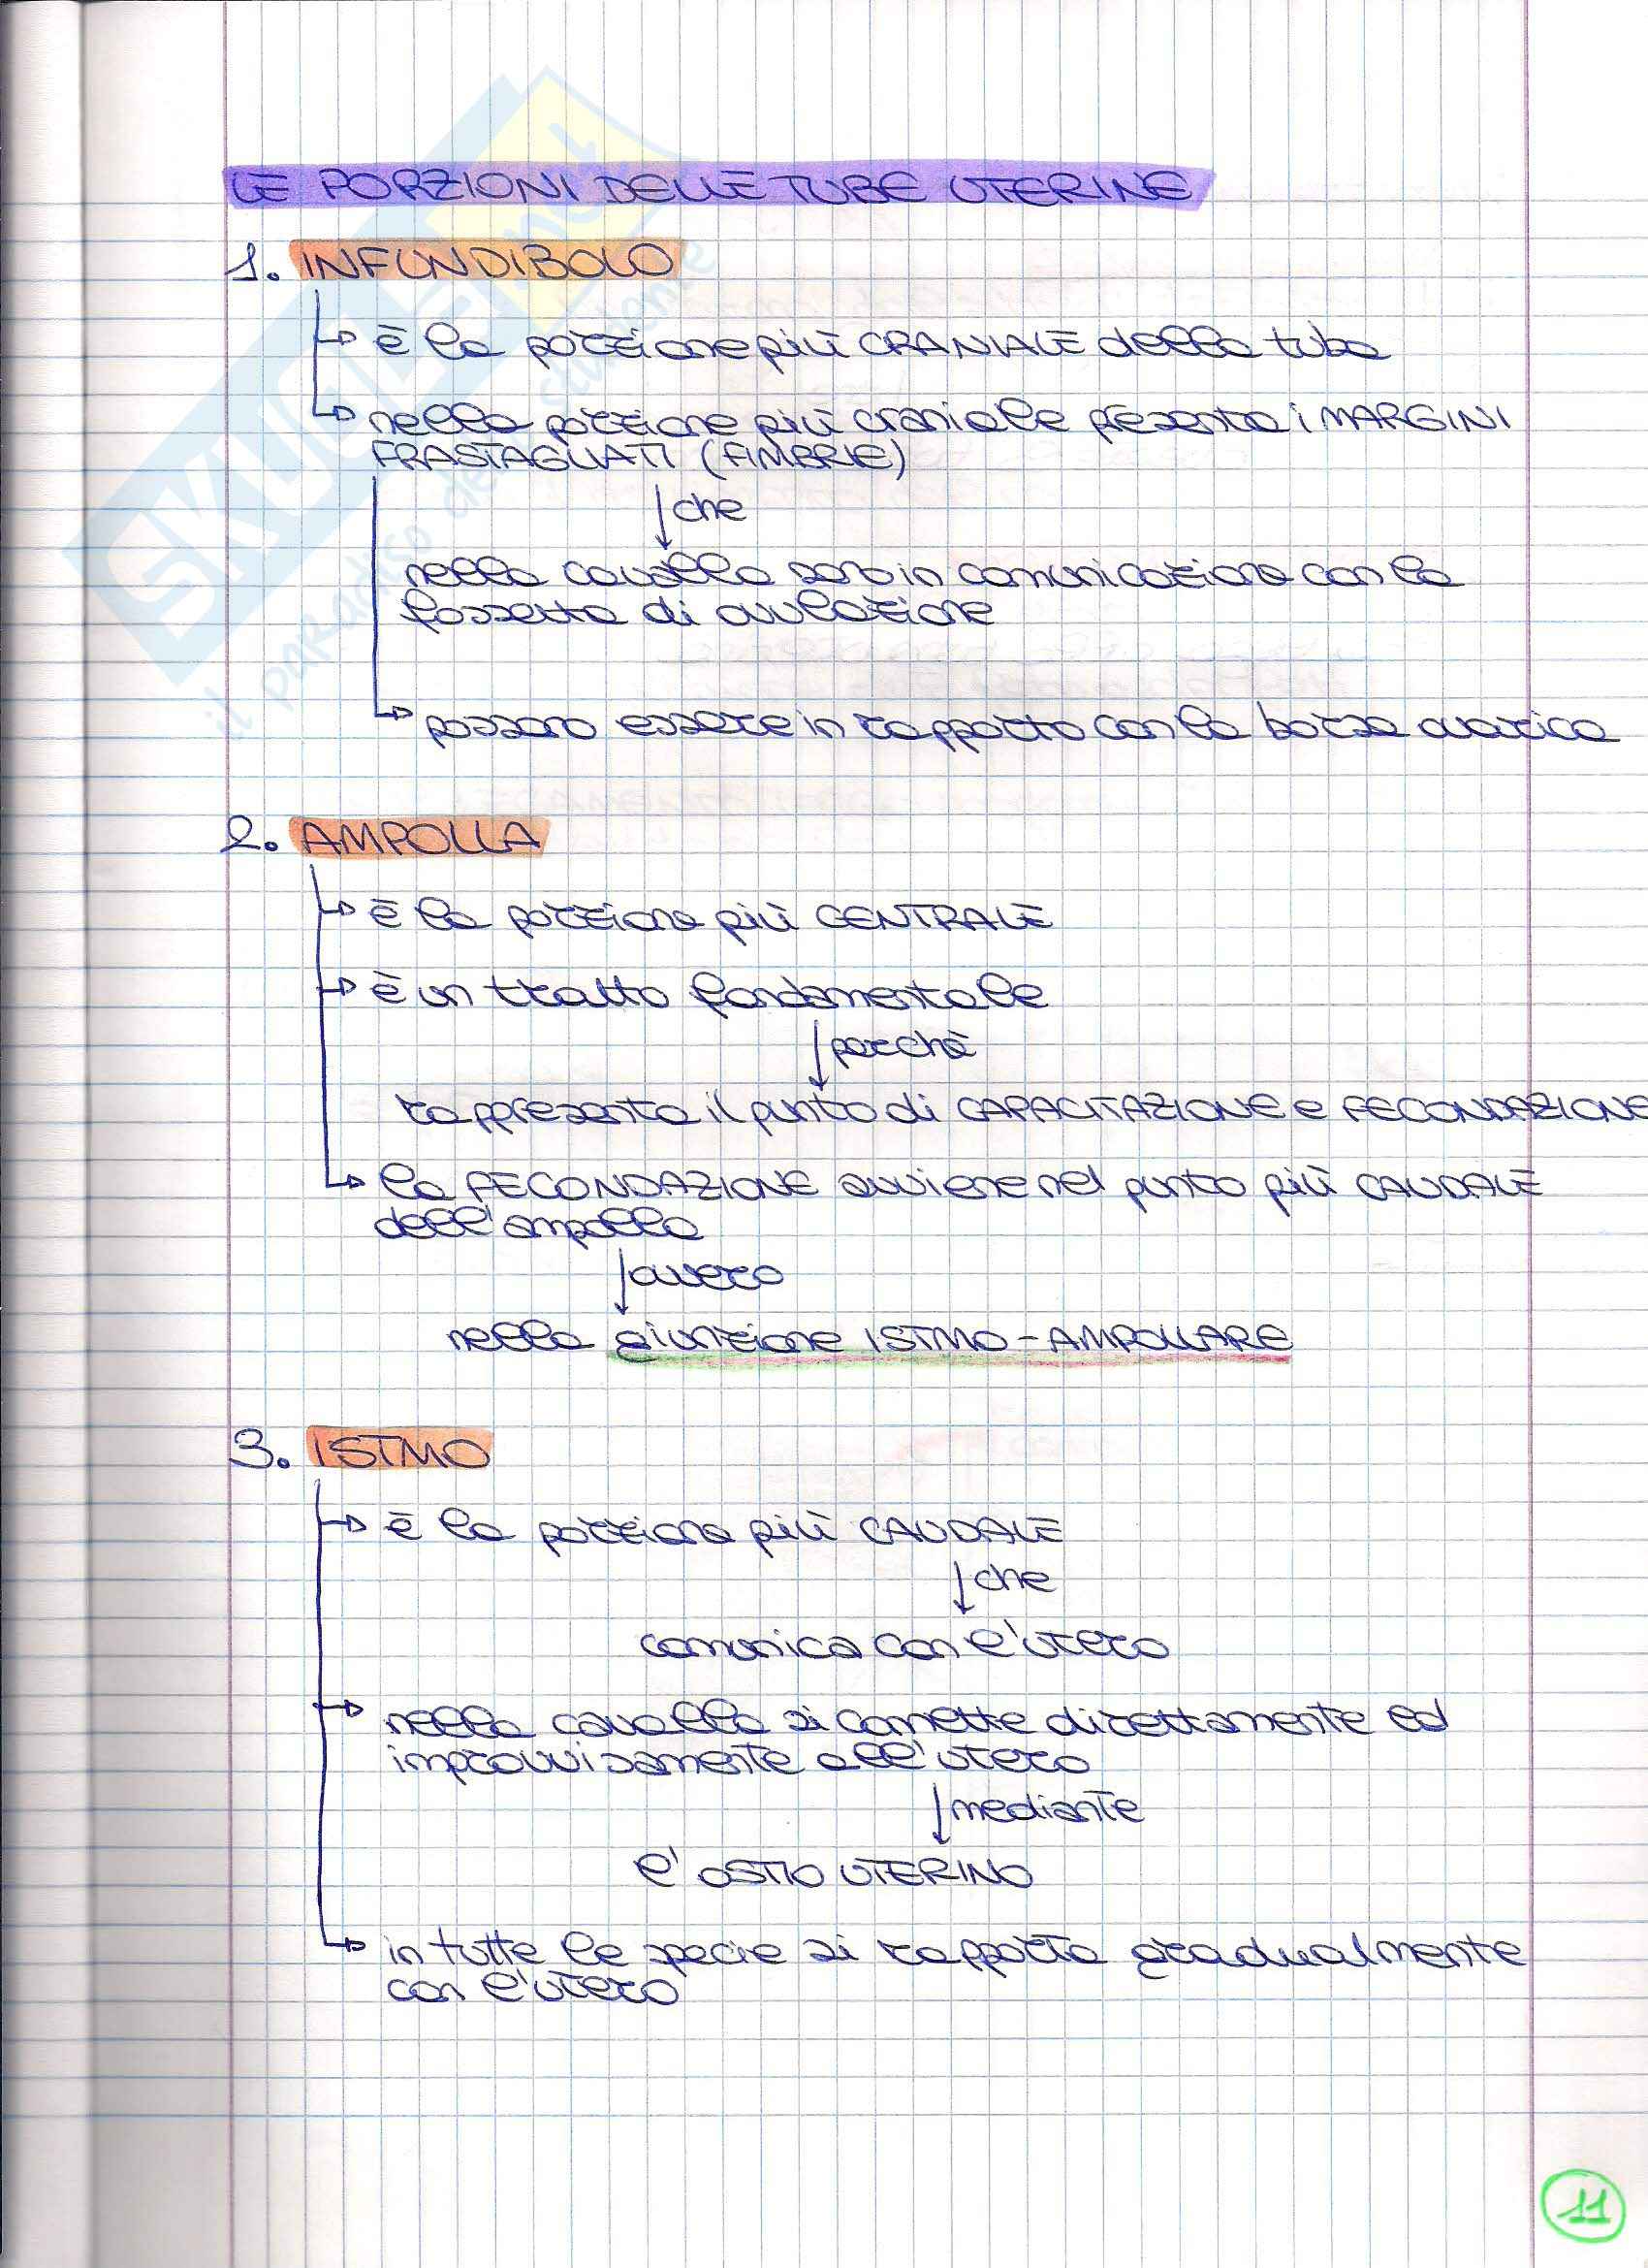 LE PORZIONI DELLE TUBE UTERINE
1. INFUNDIBOLO
è la porzione più CRANIALE della tuba
nella porzione più craniale presenta i MARGINI
FRASTAGLIATI (FIMBRIE)
che
nella cavalla sono in comunicazione con la
fossetta di ovulazione
possono essere in rapporto con la borsa ovarica
2. AMPOLLA
è la porzione più CENTRALE
è un tratto fondamentale
perchè
rappresenta il punto di CAPACITAZIONE e FECONDAZIONE
la FECONDAZIONE avviene nel punto più CAUDALE
dell'ampolla
ovvero
nella giunzione ISTMO-AMPOLLARE
3. ISTMO
è la porzione più CAUDALE
che
comunica con l'utero
nella cavalla si connette direttamente ed
improvvisamente all'utero
mediante
l'OSTIO UTERINO
in tutte le specie si rapporta gradualmente
con l'utero
11
SKUOLA.net
il paradiso dello studente